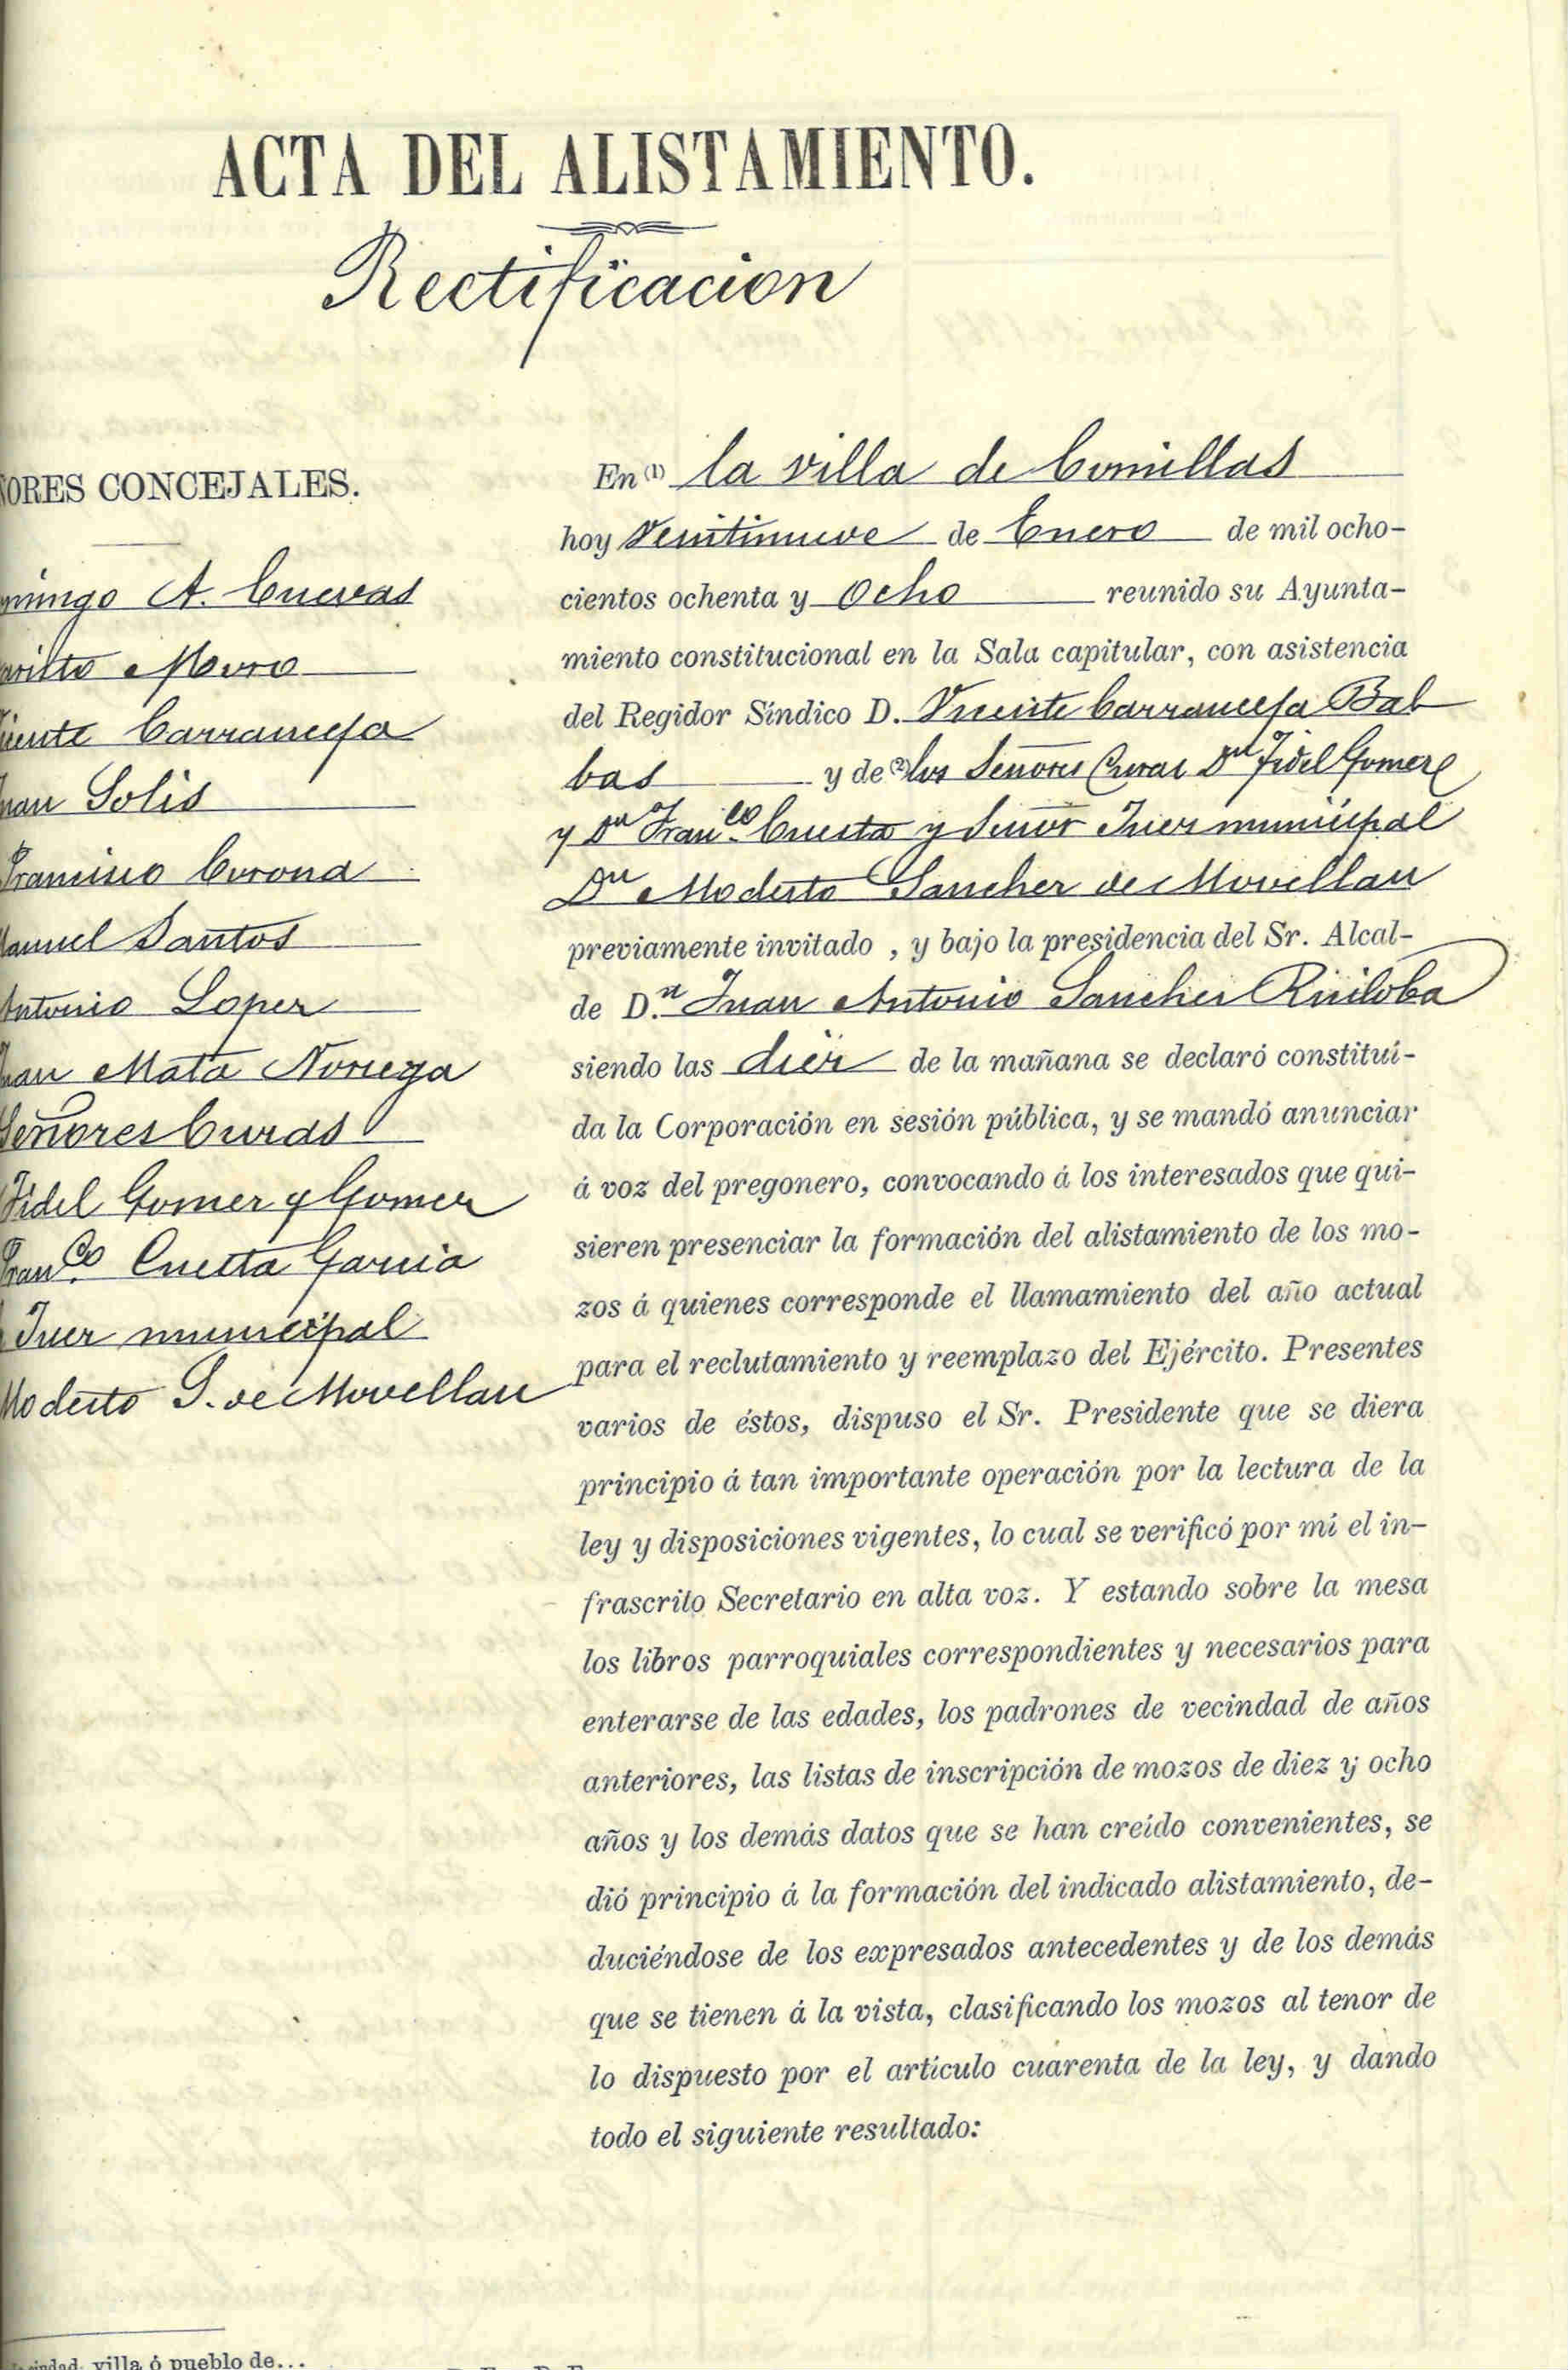 ACTA DEL ALISTAMIENTO.
Rectificacion
ÑORES CONCEJALES.
mingo A. Cuevas
aristo Moro
icente Carranceja
Juan Solis
Francisco Corona
Manuel Santos
Antonio Lopez
Juan Mata Noriega
Señores Curas
Fidel Gomez y Gomez
Franco. Cuesta Garcia
Juez municipal
Modesto S. de Movellan
En (1) la villa de Comillas
hoy Veintinueve de Enero de mil ocho-
cientos ochenta y Ocho reunido su Ayunta-
miento constitucional en la Sala capitular, con asistencia
del Regidor Síndico D. Vicente Carranceja Bal
bas y de (2) los Señores Curas Dn Fidel Gomez
y Dn Franco. Cuesta y Señor Juez municipal
Dn Modesto Sanchez de Movellan
previamente invitado , y bajo la presidencia del Sr. Alcal-
de D.n Juan Antonio Sanchez Ruiloba
siendo las diez de la mañana se declaró constituí-
da la Corporación en sesión pública, y se mandó anunciar
á voz del pregonero, convocando á los interesados que qui-
sieren presenciar la formación del alistamiento de los mo-
zos á quienes corresponde el llamamiento del año actual
para el reclutamiento y reemplazo del Ejército. Presentes
varios de éstos, dispuso el Sr. Presidente que se diera
principio á tan importante operación por la lectura de la
ley y disposiciones vigentes, lo cual se verificó por mí el in-
frascrito Secretario en alta voz. Y estando sobre la mesa
los libros parroquiales correspondientes y necesarios para
enterarse de las edades, los padrones de vecindad de años
anteriores, las listas de inscripción de mozos de diez y ocho
años y los demás datos que se han creído convenientes, se
dió principio á la formación del indicado alistamiento, de-
duciéndose de los expresados antecedentes y de los demás
que se tienen á la vista, clasificando los mozos al tenor de
lo dispuesto por el artículo cuarenta de la ley, y dando
todo el siguiente resultado:
villa ó pueblo de...